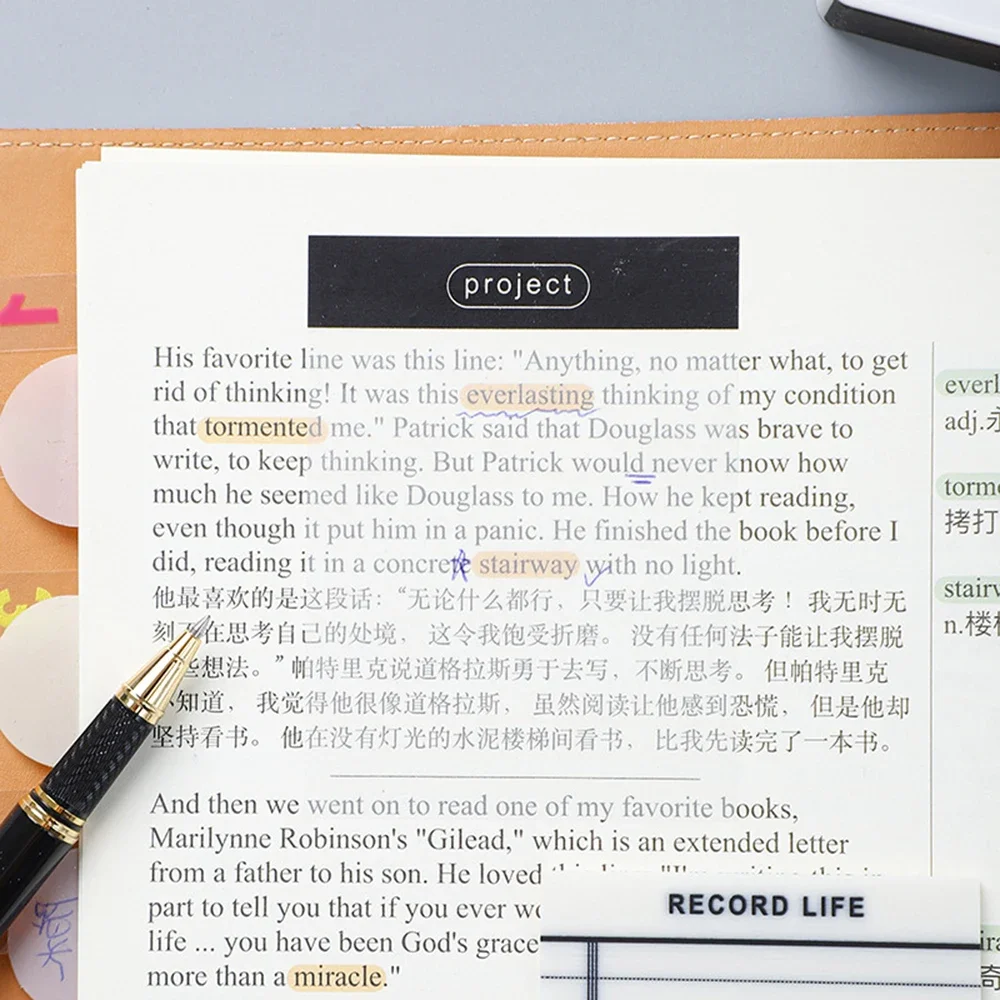 project
His favorite line was this line: "Anything, no matter what, to get
rid of thinking! It was this everlasting thinking of my condition
that tormented me." Patrick said that Douglass was brave to
write, to keep thinking. But Patrick would never know how
much he seemed like Douglass to me. How he kept reading,
even though it put him in a panic. He finished the book before I
did, reading it in a concrete stairway with no light.
他最喜欢的是这段话：“无论什么都行，只要让我摆脱思考！ 我无时无
刻不在思考自己的处境， 这令我饱受折磨。 没有任何法子能让我摆脱
些想法。” 帕特里克说道格拉斯勇于去写，不断思考。 但帕特里克
知道， 我觉得他很像道格拉斯， 虽然阅读让他感到恐慌， 但是他却
坚持看书。 他在没有灯光的水泥楼梯间看书， 比我先读完了一本书。
And then we went on to read one of my favorite books,
Marilynne Robinson's "Gilead," which is an extended letter
from a father to his son. He loved this line: "I'm writing this in
part to tell you that if you ever
life ... you have been God's grace
more than a miracle."
adj.
拷打
n.楼梯
RECORD LIFE